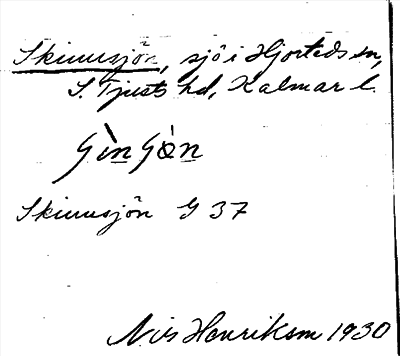 Skinnsjön, sjö i Hjorteds sn,
S. Tjusts hd, Kalmar l.
Skinnsjön G 37
Nils Henriksson 1930